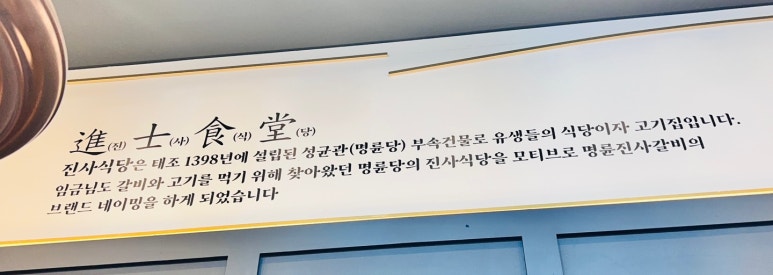 進(진) 士(사) 食(식) 堂(당)
진사식당은 태조 1398년에 설립된 성균관(명륜당) 부속건물로 유생들의 식당이자 고기집입니다.
임금님도 갈비와 고기를 먹기 위해 찾아왔던 명륜당의 진사식당을 모티브로 명륜진사갈비의
브랜드 네이밍을 하게 되었습니다